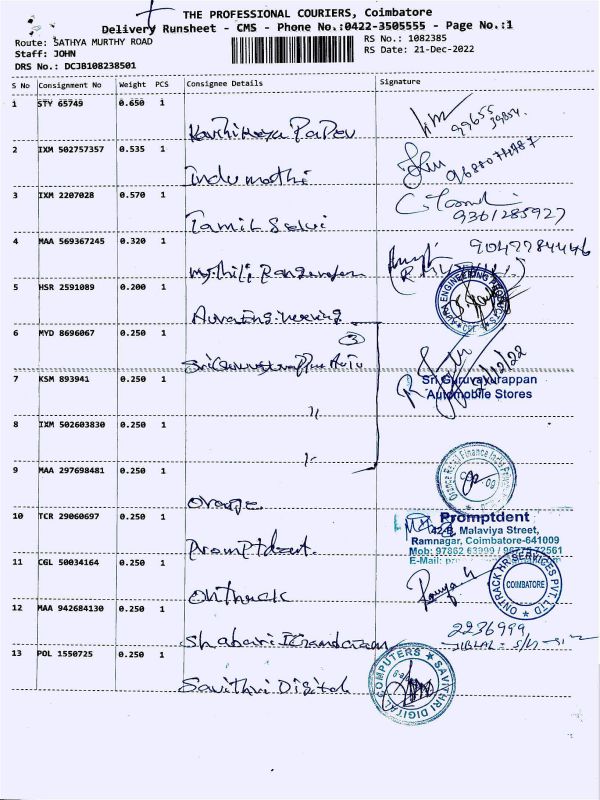 THE PROFESSIONAL COURIERS, Coimbatore
Delivery Runsheet - CMS - Phone No.:0422-3505555 - Page No.:1
Route: SATHYA MURTHY ROAD
RS No.: 1082385
Staff: JOHN
RS Date: 21-Dec-2022
DRS No.: DCJB108238501
S No Consignment No Weight PCS Consignee Details Signature
1 STY 65749 0.650 1
99655
2 IXM 502757357 0.535 1
Indumathi
3 IXM 2207028 0.570 1
9361285927
Tamil Selvi
4 MAA 569367245 0.320 1
9049784446
Mythili
5 HSR 2591089 0.200 1
AURA ENGINEERING
Aura Engineering
6 MYD 8696067 0.250 1
3
Auto
7 KSM 893941 0.250 1
Sri Guruvayurappan
Automobile Stores
8 IXM 502603830 0.250 1
9 MAA 297698481 0.250 1
Orange
10 TCR 29060697 0.250 1
Promptdent
42-B, Malaviya Street,
Ramnagar, Coimbatore-641009
Mob: 97862 63999
E-Mail:
Promptdent.
11 CGL 50034164 0.250 1
ONTRACK HR SERVICES PVT. LTD
COIMBATORE
Ramya
Onthrack
12 MAA 942684130 0.250 1
2236999
Shabari
13 POL 1550725 0.250 1
SAVITHRI DIGITAL COMPUTERS
Savithri Digital